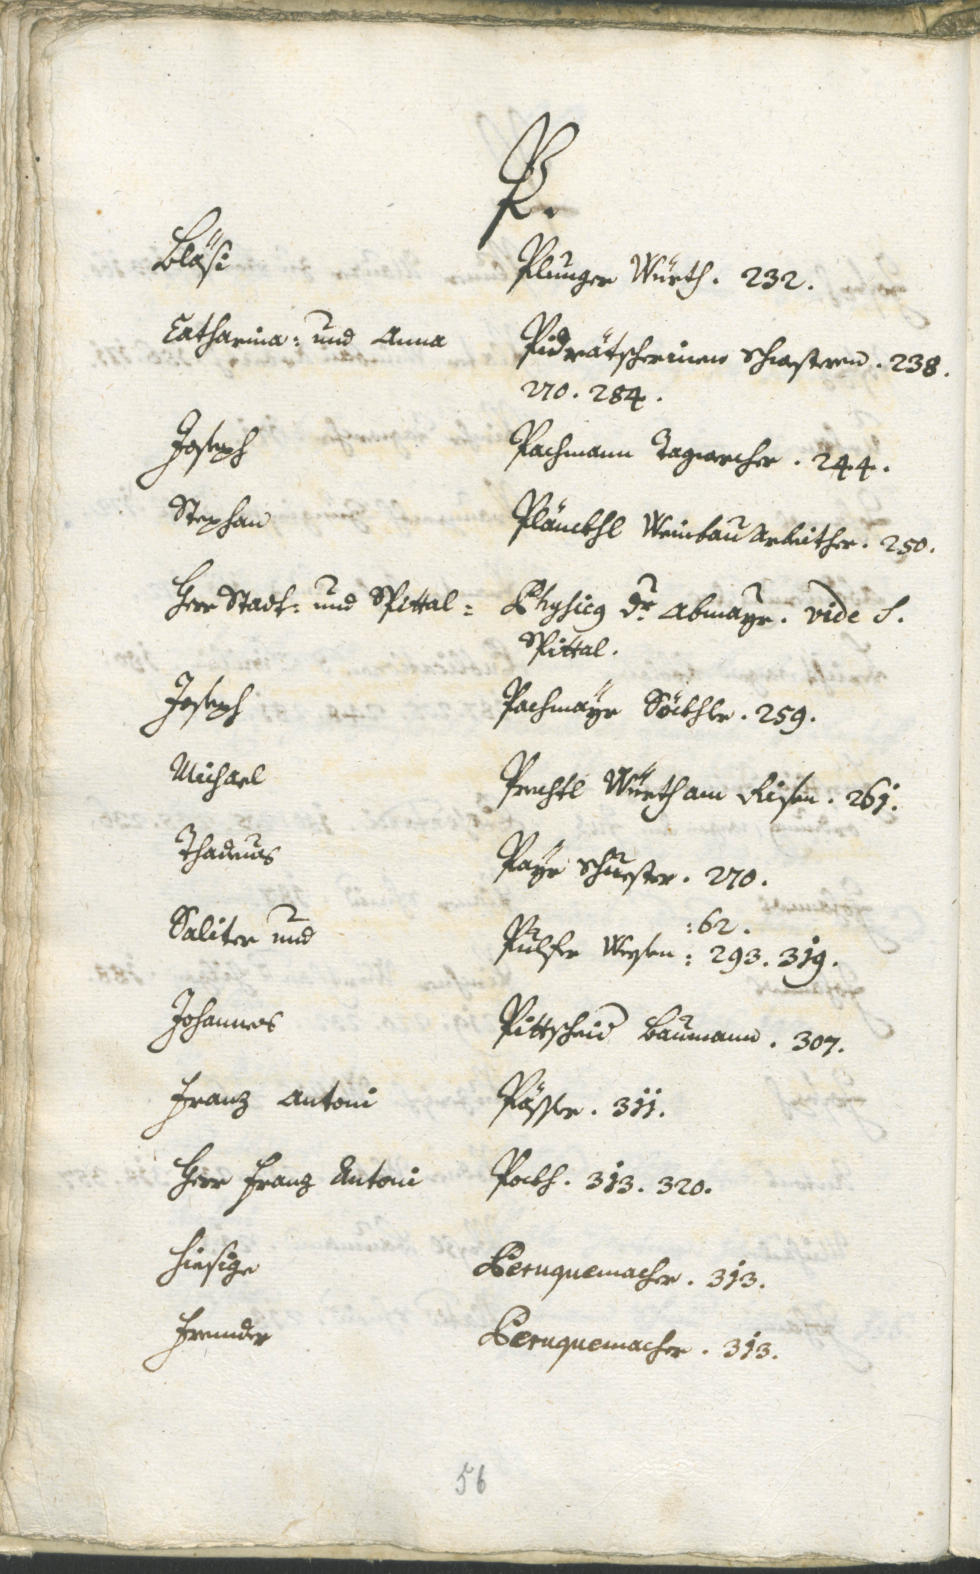 P.
Bläsi Plunger Würth. 232.
Catharina: und Anna Pidrätscherinen Schwesteren. 238.
270. 284.
Joseph Pachmann Tagwercher. 244.
Stephan Plänckhl Weinbau Arbeither. 250.
Herr Stadt: und Spittal: Physicg Dr. Abmayr. vide S.
Spittal.
Joseph Pachmayr Säckhler. 259.
Michael Prechtl Würth am Risen. 261.
Thadeus Payr Schuester. 270.
:62.
Saliter und Pulfer Wesen: 293. 319.
Johannes Pittscheid Baumann. 307.
Franz Antoni Pässler. 311.
Herr Franz Antoni Pockh. 313. 320.
Hiesige Peruquemacher. 313.
Frembde Peruquemacher. 313.
56